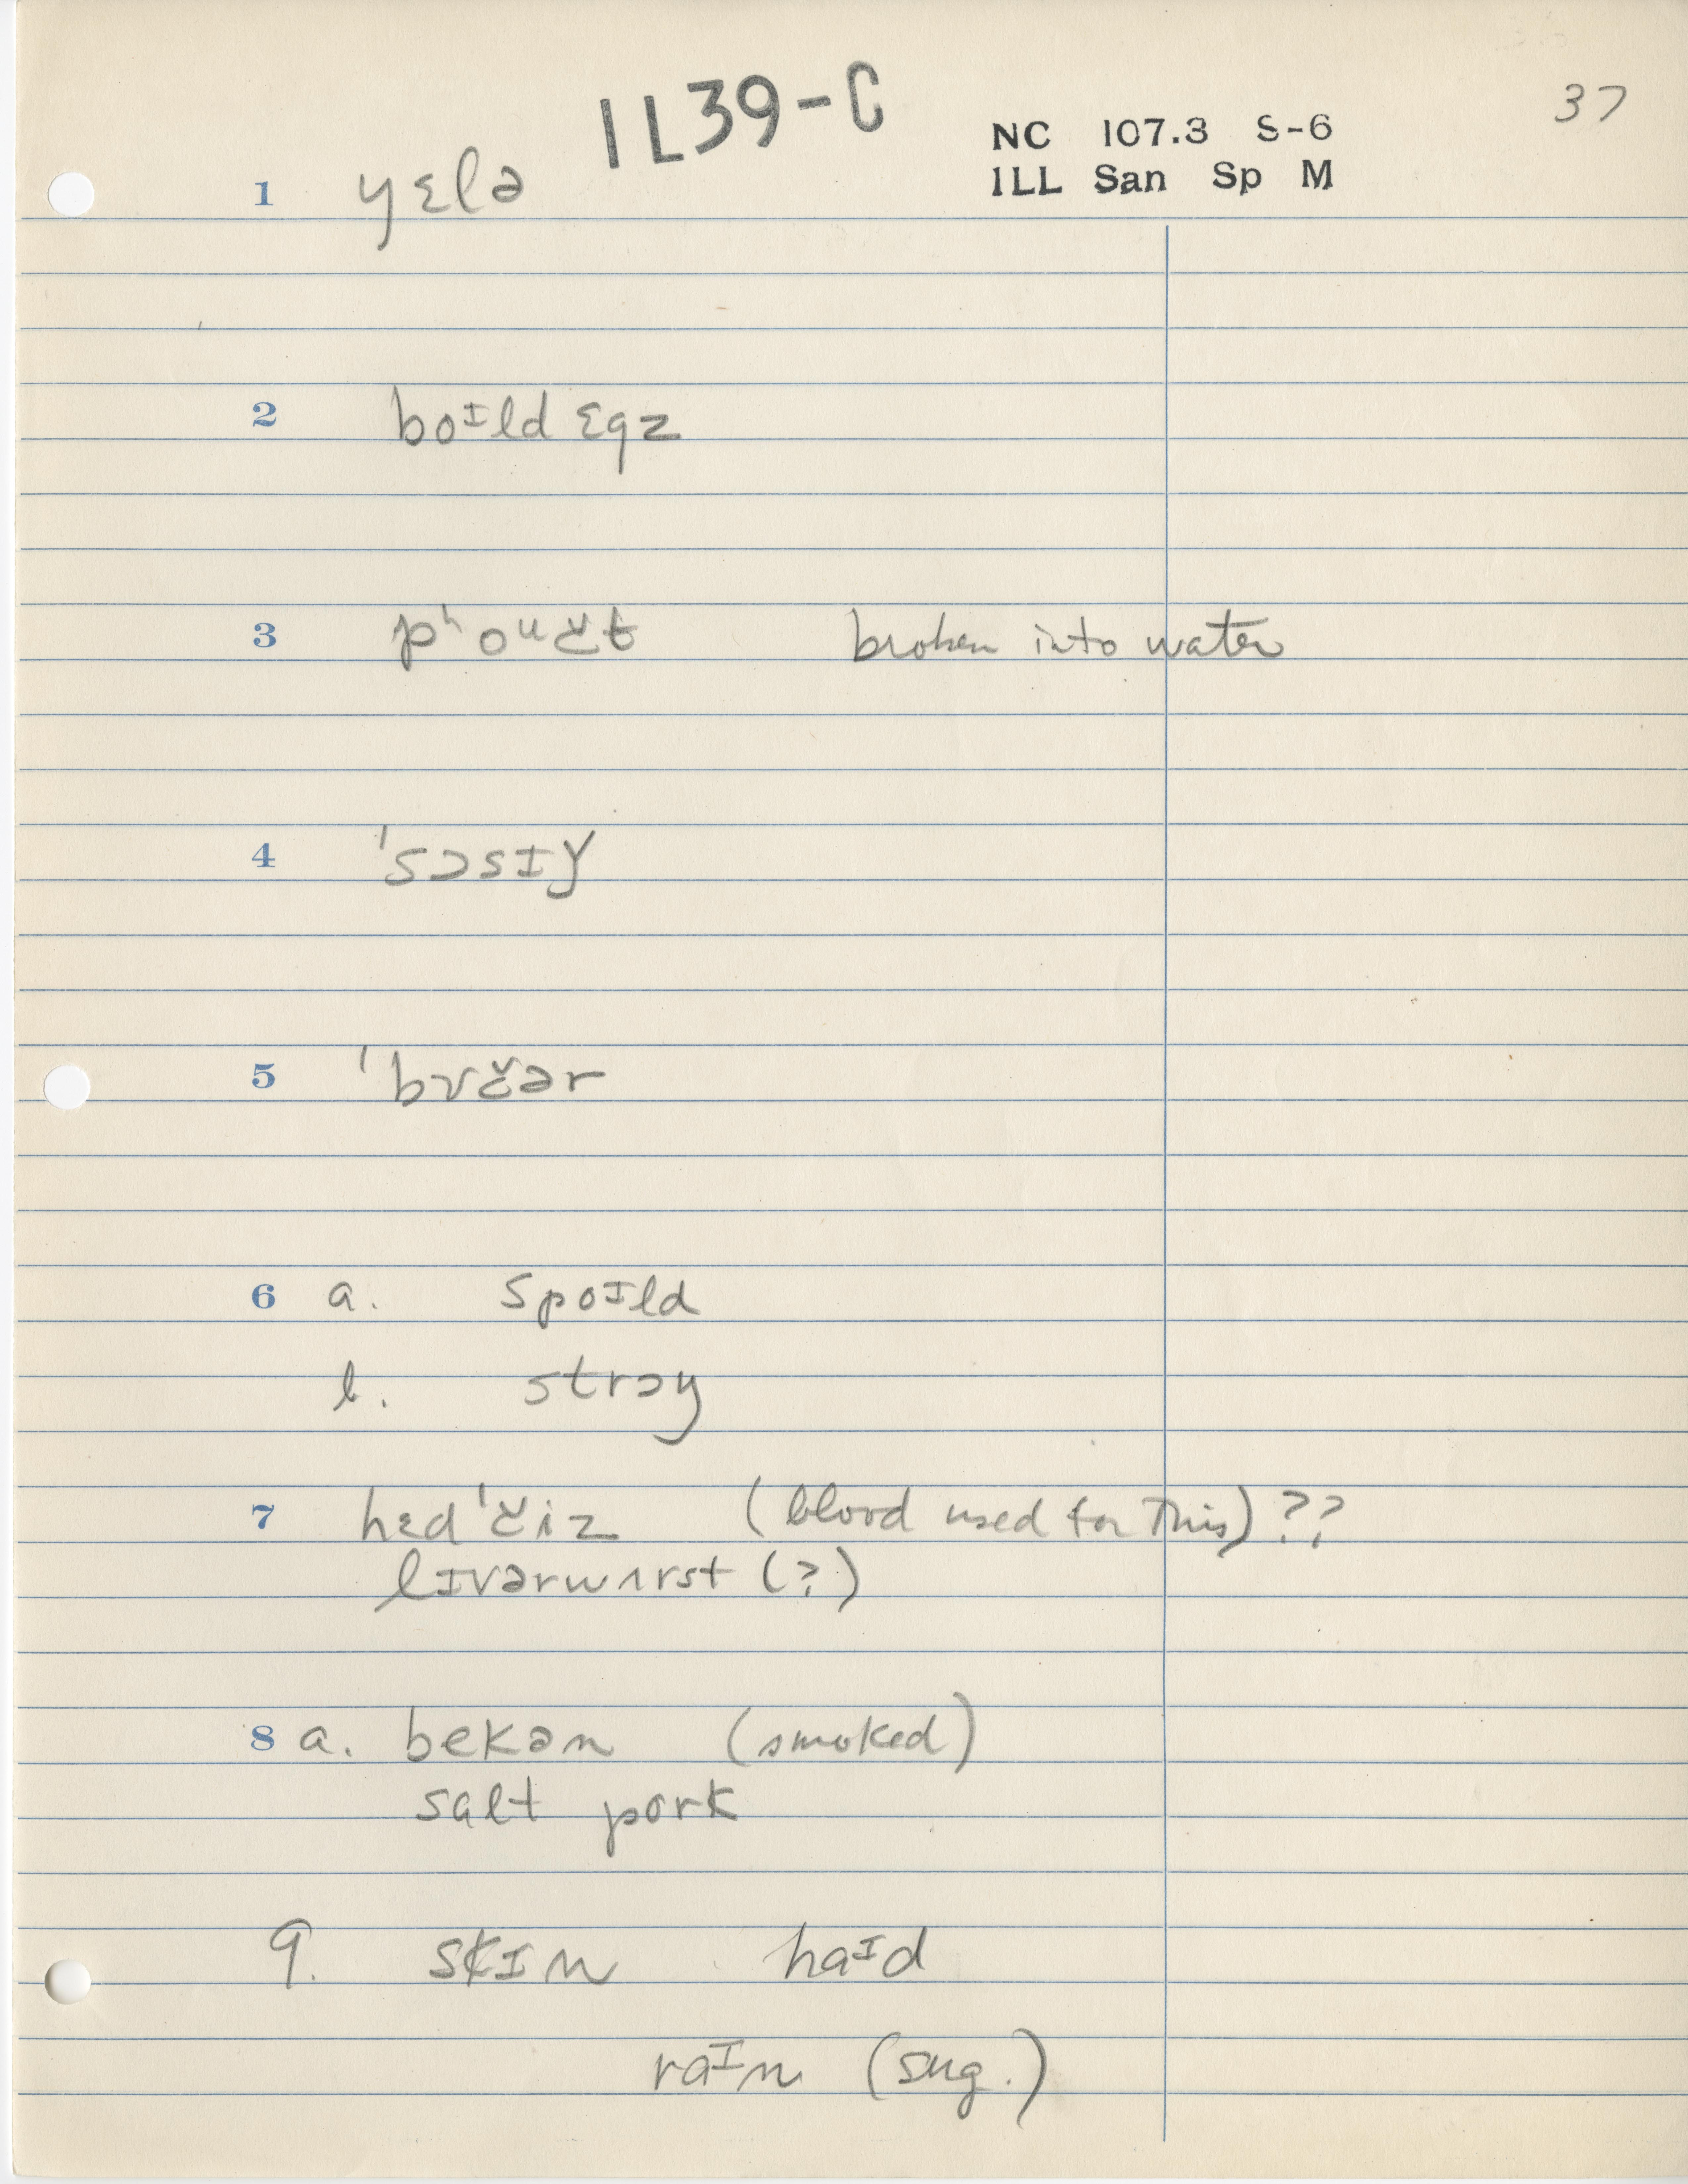 1L39-C
NC 107.3 S-6
ILL San Sp M
37
1 yɛlə
2 boᴵld ɛgz
3 pʰoᵘčt broken into water
4 ˈsɔsɪɣ
5 ˈbʊčər
6 a. spoᴵld
b. strɔy
7 hɛdˈčiz (blood used for this) ??
lɪvərwʌrst (?)
8 a. bekən (smoked)
salt pork
9. skɪn haᴵd
raᴵn (sug.)